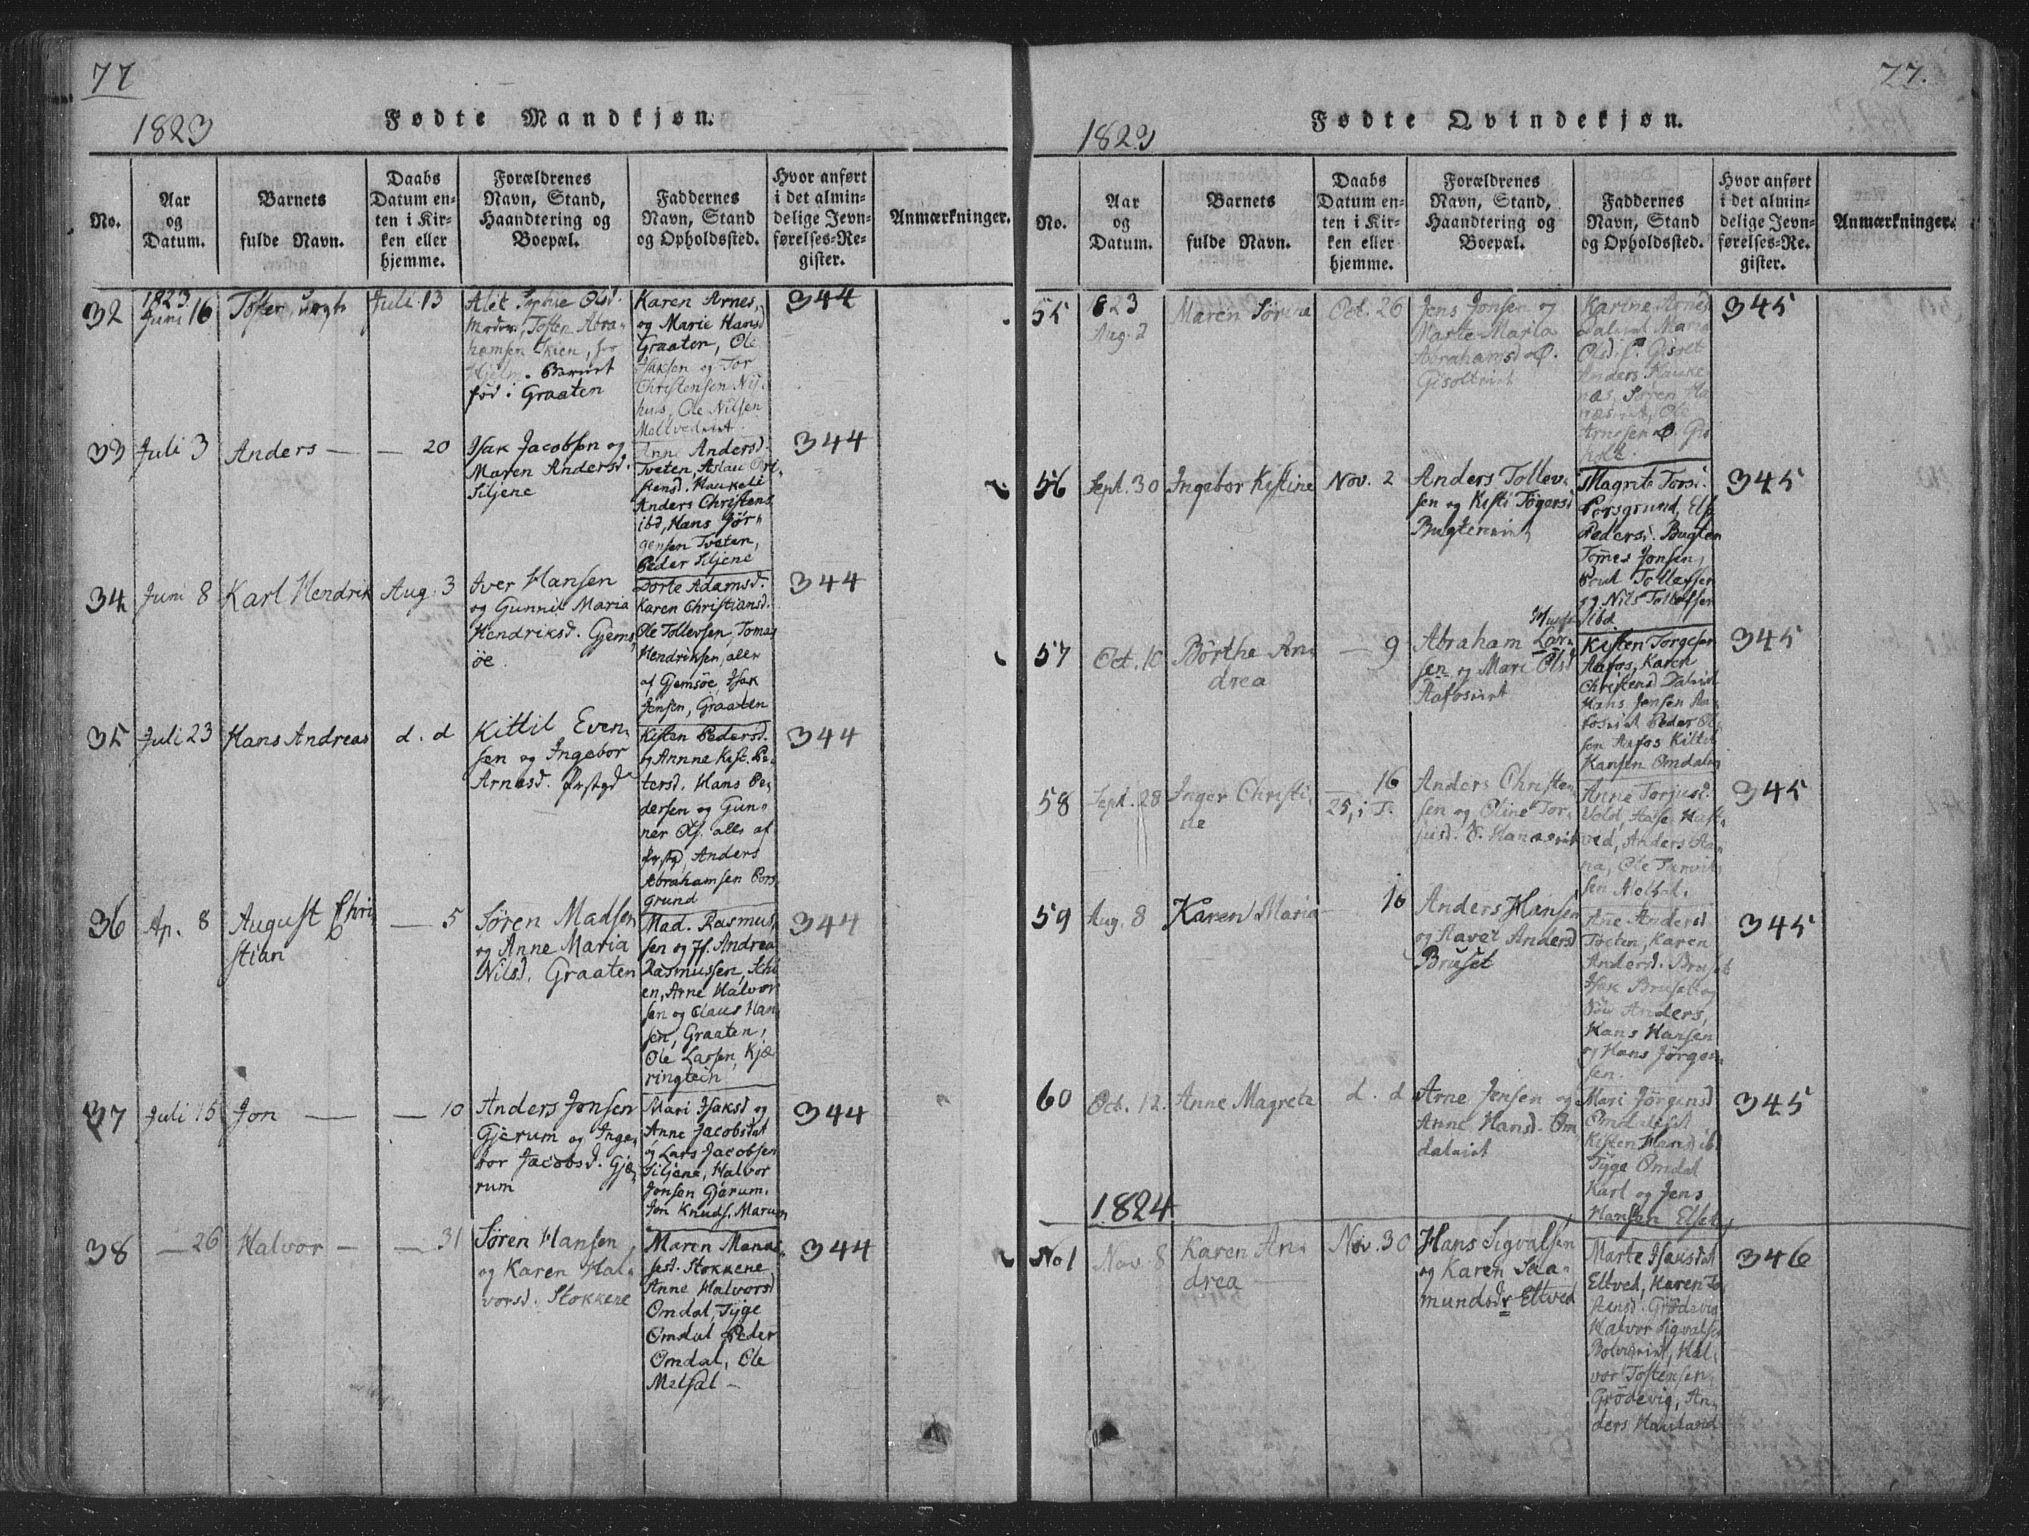 77
1823
Fødte Mandkjøn.
No.
Aar
og
Datum.
Barnets
fulde Navn.
Daabs
Datum en-
ten i Kir-
ken eller
hjemme.
Forældrenes
Navn, Stand,
Haandtering og
Boepæl.
Faddernes
Navn, Stand
og Opholdssted.
Hvor anført
i det almin-
delige Jevn-
førelses-Re-
gister.
Anmærkninger.
32
1823
Juni 16
Tosten, uegte
Juli 13
Alet Sophie Olsd.
Moder, Tosten Abra-
hamsen Skien,
Barnet
fød i Graaten
Karen Arnes,
og Marie Hansd
Graaten, Ole
Isaksen og Tor
Christensen
Ole Nilsen
344
33
Juli 3
Anders —
— 20
Isak Jacobsen og
Maren Andersd.
Siljene
Anne Andersd.
Tveten, Aslau
Anders Christens
ibd, Hans Jør-
gensen Tveten,
Peder Siljene
344
34
Juni 8
Karl Hendrik
Aug. 3
Iver Hansen
og Gunnil Maria
Hendriksd. Gjems-
øe.
Dorte Adamsd.
Karen Christiansd.
Ole Tollevsen, Tomas
Hendriksen, alle
af Gjemsøe, Isak
Jensen, Graaten
344
35
Juli 23
Hans Andreas
d. d
Kittil Even-
sen og Ingebor
Arnesd.
Kisten Pedersd.
og Annne Kist. Pe-
tersd. Hans Pe-
dersen og Gun-
ner Ols. alle af
Anders
Abrahamsen Pors-
grund
344
36
Ap. 8
August Chri
stian
— 5
Søren Madsen
og Anne Maria
Nilsd. Graaten
Mad. Rasmus-
sen og Jf. Andrea
Rasmussen, Ski
en, Arne Halvor
sen og Claus Han
sen, Graaten,
Ole Larsen, Kjæ
ringtein
344
37
Juli 15
Jon —
— 10
Anders Jonsen
Gjerum og Inge-
bor Jacobsd. Gjæ-
rum
Mari Isaksd og
Anne Jacobsdat
og Lars Jacobsen
Siljene, Halvor
Jonsen Gjerum.
Jon Knuds. Marum
344
38
— 26
Halvor —
— 31
Søren Hansen
og Karen Hal-
vorsd. Stokkene
Maren Manas-
sesd. Stokkene
Anne Halvorsd
Omdal, Tyge
Omdal Peder
Omdal, Ole
Melsal —
344
77.
1823
Fødte Qvindekjøn.
No.
Aar
og
Datum.
Barnets
fulde Navn.
Daabs
Datum en-
ten i Kir-
ken eller
hjemme.
Forældrenes
Navn, Stand,
Haandtering og
Boepæl.
Faddernes
Navn, Stand
og Opholdssted.
Hvor anført
i det almin-
delige Jevn-
førelses-Re-
gister.
Anmærkninger.
55
823
Aug. 2
Maren Sørine
Oct. 26
Jens Jonsen og
Marte Maria
Abrahamsd
Karine Arnes
Maria
Olsd.
Anders Hauke
næs, Søren Ha
næs, Ole
Arnesen
345
56
Sept. 30
Ingebor Kistine
Nov. 2
Anders Tollev-
sen og Kisti Togersd
Magrite Torsd.
Porsgrund, Else
Pedersd. Bugten
Tomes Jonsen,
Poul Tollefsen
og Nils Tollefsen
ibd
345
57
Oct. 10
Børthe An-
drea
— 9
Abraham Lar-
sen og Mari Olsd
Kisten Torgesen
Aafos, Karen
Christensd
Hans Jensen
Peder Ol-
sen Aafos Kittel
Hansen Omdalen
345
58
Sept. 28
Inger Christi-
ne
16
25, i T.
Anders Christen
sen og Oline Tor-
jusd.
Anne Torjusd.
Vold,
Anders
Ole
345
59
Aug. 8
Karen Maria
16
Anders Hansen
og Aavet Andersd
Bruset
Ane Andersd
Tveten, Karen
Andersd. Bruset
Isak Bruset og
Anders,
Hans Hansen
og Hans Jørgen-
sen.
345
60
Oct. 12.
Anne Magrete
d. d
Arne Jensen og
Anne Hansd. Om
daleiet
Mari Jørgensd
Omdaleiet
Kisten Hansd ibd
Tyge Omdal
Karl og Jens
Hansen Elset
345
1824
No 1
Nov. 8
Karen An-
drea —
Nov. 30
Hans Sigvalsen
og Karen Saa-
mundsdr Eltved
Marte Isaksdat
Eltved, Karen To-
stensd. Grødevig
Halvor Sigvalsen
Hal-
vor Tostensen,
Grødevig, An-
ders Haukand
346